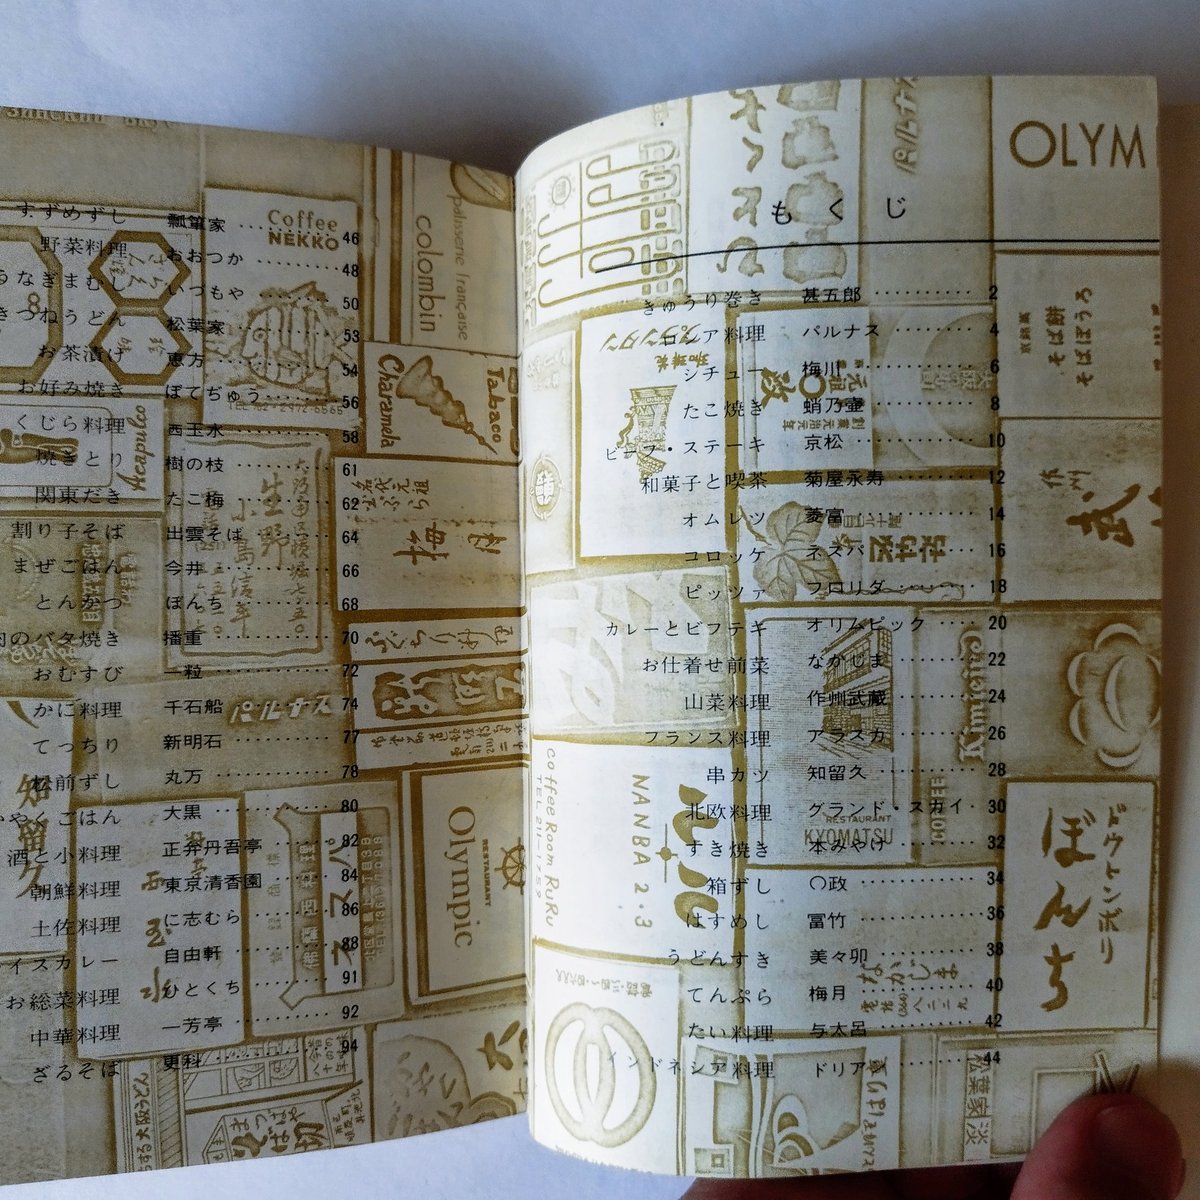 もくじ
きゅうり巻き 甚五郎 ………… 2
ロシア料理 パルナス ………… 4
シチュー 梅川 ………… 6
たこ焼き 蛸乃壷 ………… 8
ビーフ・ステーキ 京松 ………… 10
和菓子と喫茶 菊屋永寿 ………… 12
オムレツ 菱富 ………… 14
コロッケ ネスパ ………… 16
ピッツァ フロリダ ………… 18
カレーとビフテキ オリムピック ………… 20
お仕着せ前菜 なかじま ………… 22
山菜料理 作州武蔵 ………… 24
フランス料理 アラスカ ………… 26
串カツ 知留久 ………… 28
北欧料理 グランド・スカイ ・ 30
すき焼き 本みやけ ………… 32
箱ずし 〇政 ………… 34
はすめし 冨竹 ………… 36
うどんすき 美々卯 ………… 38
てんぷら 梅月 ………… 40
たい料理 与太呂 ………… 42
インドネシア料理 ドリアン ………… 44
すずめずし 瓢箪家 ………… 46
野菜料理 おおつか ………… 48
うなぎまむし いづもや ………… 50
きつねうどん 松葉家 ………… 53
お茶漬け 恵方 ………… 54
お好み焼き ぼてぢゅう ………… 56
くじら料理 西玉水 ………… 58
焼きとり 樹の枝 ………… 61
関東だき たこ梅 ………… 62
割り子そば 出雲そば ………… 64
まぜごはん 今井 ………… 66
とんかつ ぼんち ………… 68
肉のバタ焼き 播重 ………… 70
おむすび 一粒 ………… 72
かに料理 千石船 ………… 74
てっちり 新明石 ………… 77
松前ずし 丸万 ………… 78
やくごはん 大黒 ………… 80
酒と小料理 正弁丹吾亭 ………… 82
朝鮮料理 東京清香園 ………… 84
土佐料理 に志むら ………… 86
イスカレー 自由軒 ………… 88
お総菜料理 ひとくち ………… 91
中華料理 一芳亭 ………… 92
ざるそば 更科 ………… 94
OLYM
パルナス
そば餅
そばぼうろ
プランタン
RESTAURANT
KYOMATSU
COFFEE
ドウトンボリ
ぼんち
NANBA 2・3
ルル
Coffee Room RuRu
TEL 211-1759
なかじま
松葉家
Coffee
NEKKO
colombin
patisserie française
Charamela
Tabaco
Acapulco
パルナス
RESTAURANT
Olympic
ネスパ
知留久